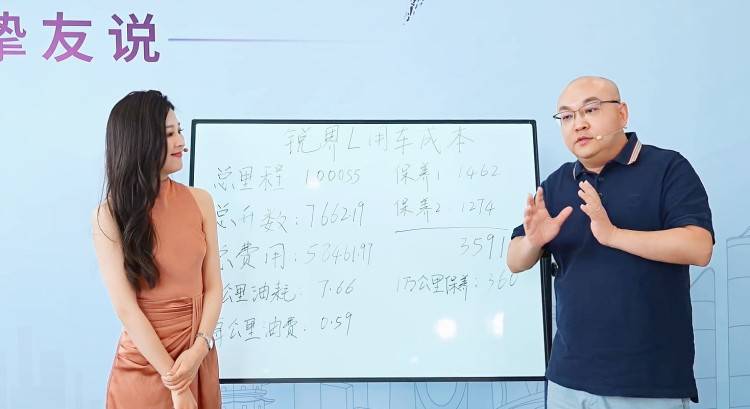 挚友说
锐界L用车成本
总里程 100055 保养1 1462
总升数:766219 保养2:1274
总费用:5846197 3591
公里油耗:7.66 1万公里保养:360
每公里油费:0.59